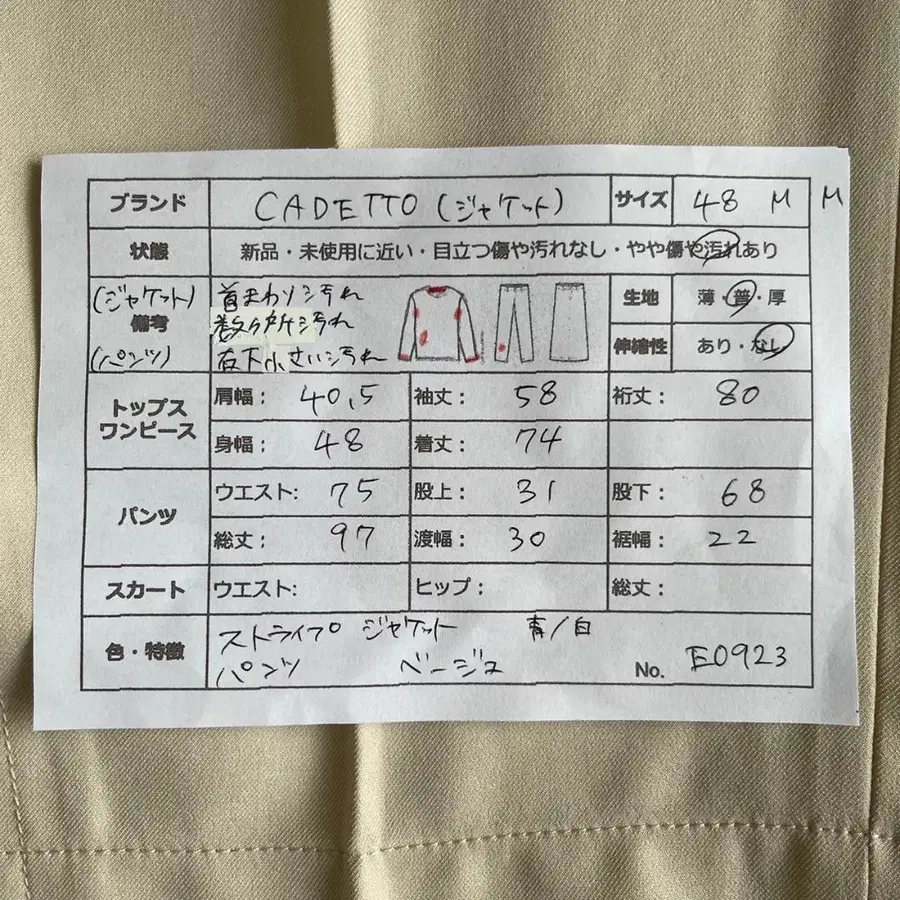 ブランド CADETTO (ジャケット) サイズ 48 M M
状態 新品・未使用に近い・目立つ傷や汚れなし・やや傷や汚れあり
(ジャケット) 首まわり汚れ 生地 薄・普・厚
備考 数ヶ所汚れ
(パンツ) 右下小さい汚れ 伸縮性 あり・なし
トップス ワンピース 肩幅: 40.5 袖丈: 58 裄丈: 80
身幅: 48 着丈: 74
パンツ ウエスト: 75 股上: 31 股下: 68
総丈: 97 渡幅: 30 裾幅: 22
スカート ウエスト: ヒップ: 総丈:
色・特徴 ストライプ ジャケット 青/白
パンツ ベージュ No. E0923